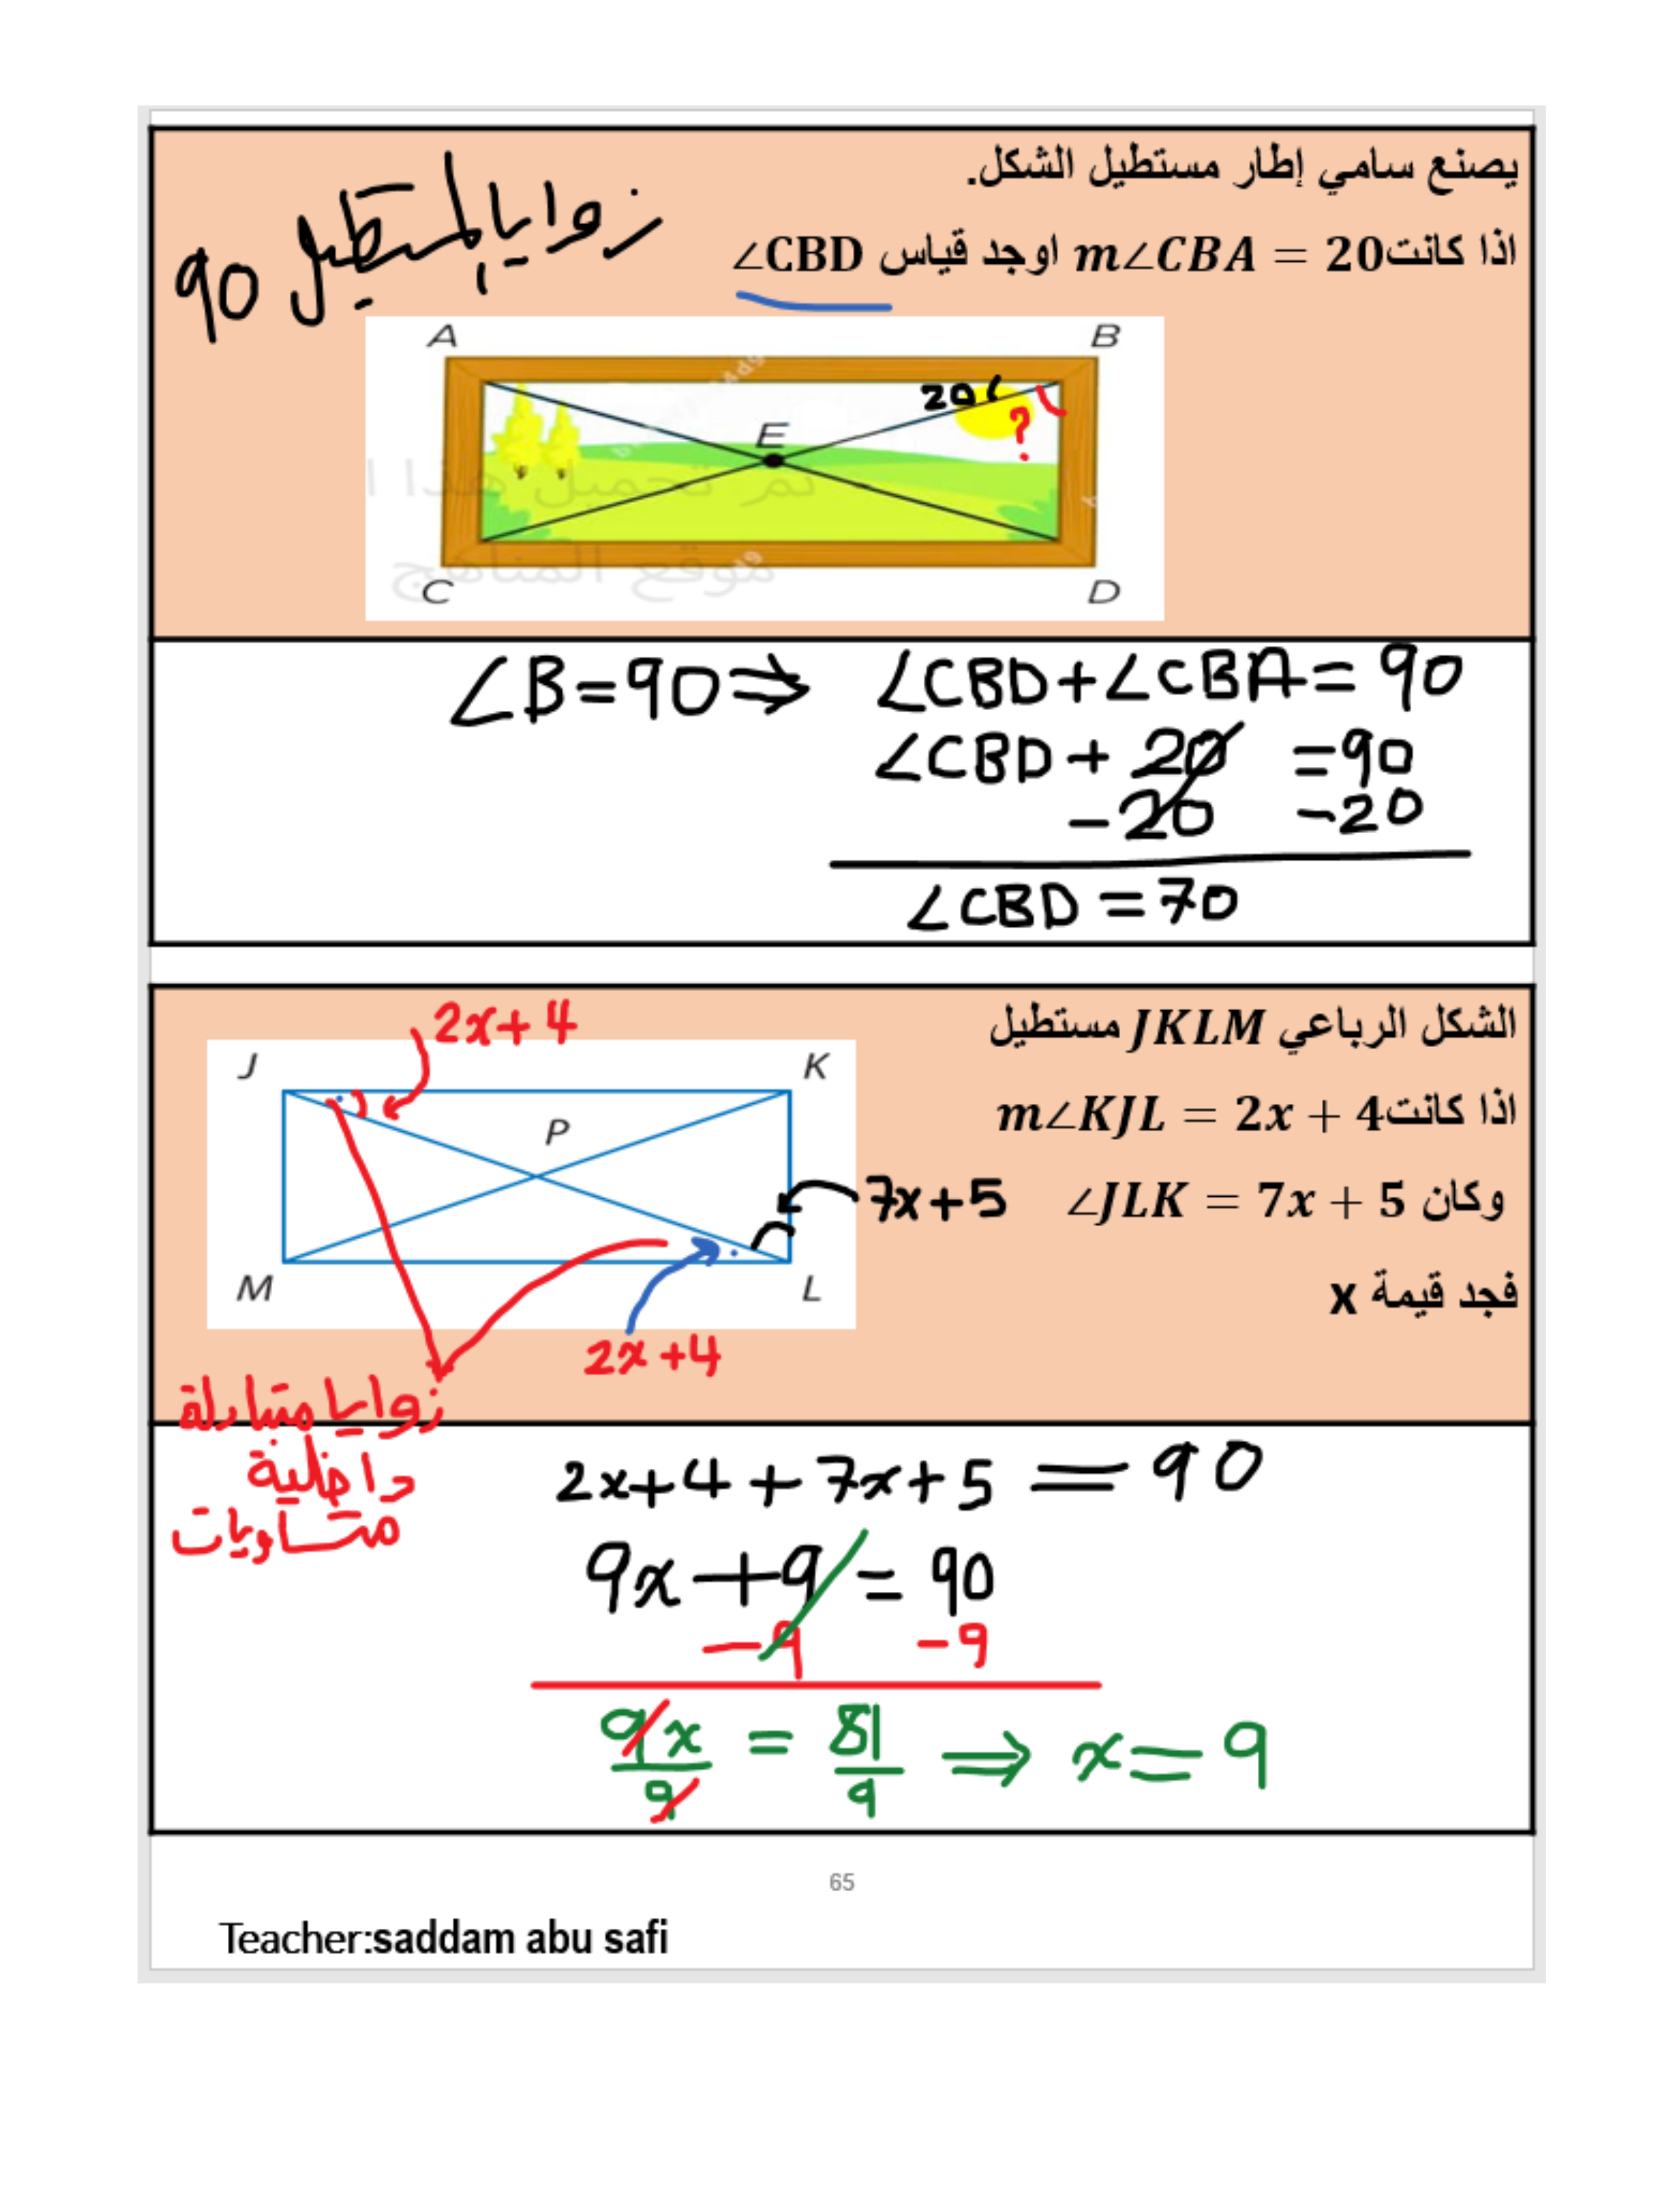 يصنع سامي إطار مستطيل الشكل.
اذا كانت m∠CBA = 20 اوجد قياس ∠CBD
زوايا المستطيل 90
A B
20 ?
E
C D
∠B=90⇒ ∠CBD+∠CBA=90
∠CBD+20 =90
-20 -20
∠CBD=70
الشكل الرباعي JKLM مستطيل
اذا كانت m∠KJL = 2x + 4
وكان ∠JLK = 7x + 5
فجد قيمة x
2x+4
J K
P
7x+5
M L
2x+4
زوايا متبادلة
داخلية
متساويات
2x+4+7x+5=90
9x+9=90
-9 -9
9x/9 = 81/9 ⇒ x=9
65
Teacher:saddam abu safi